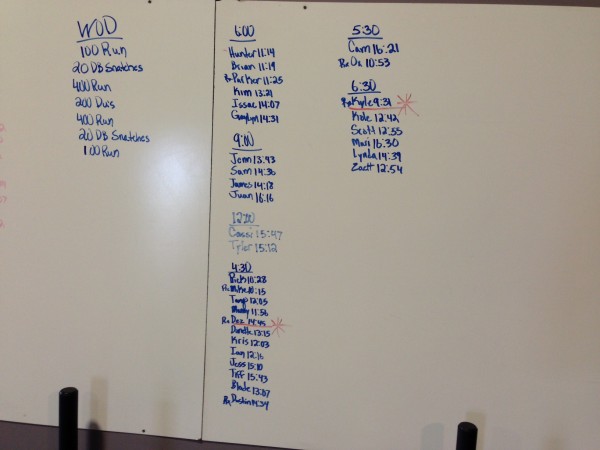 WOD
100 Run
20 DB Snatches
400 Run
200 Du's
400 Run
20 DB Snatches
100 Run
6:00
Hunter 11:14
Brian 11:19
Rx Parker 11:25
Kim 13:21
Issac 14:07
14:31
9:00
Jenn 13:43
Sam 14:36
James 14:18
Juan 16:16
12:00
Cassi 15:47
Tyler 15:12
4:30
Rick 10:28
Rx Mike 10:15
12:05
Mandy 11:56
Rx Dez 14:45
13:15
Kris 12:03
Ian 12:16
Jess 15:10
Tiff 15:43
Blade 13:07
Rx Dustin 14:34
5:30
Cam 16:21
Rx Oz 10:53
6:30
Rx Kyle 9:31
Kole 12:42
Scott 12:55
Mari 16:30
Lynda 14:39
Zach 12:54